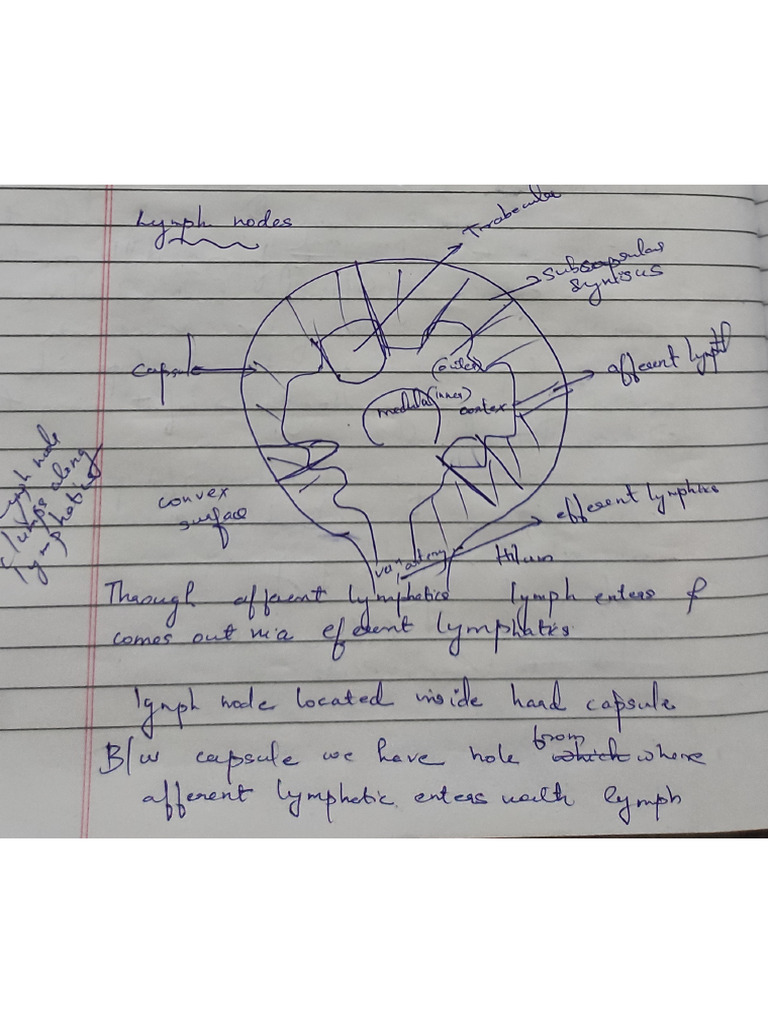 Lymph nodes
Trabeculae
Subcapsular
Synisus
capsule
afferent lymph
(outer)
medulla (inner) cortex
lymph node
lumps along
lymphatics
convex
surface
efferent lymphics
vein artery
Hilum
Through afferent lymphatics lymph enters &
comes out via eferent lymphatics
lymph node located inside hard capsule
B/w capsule we have hole from where
afferent lymphatic enters with lymph